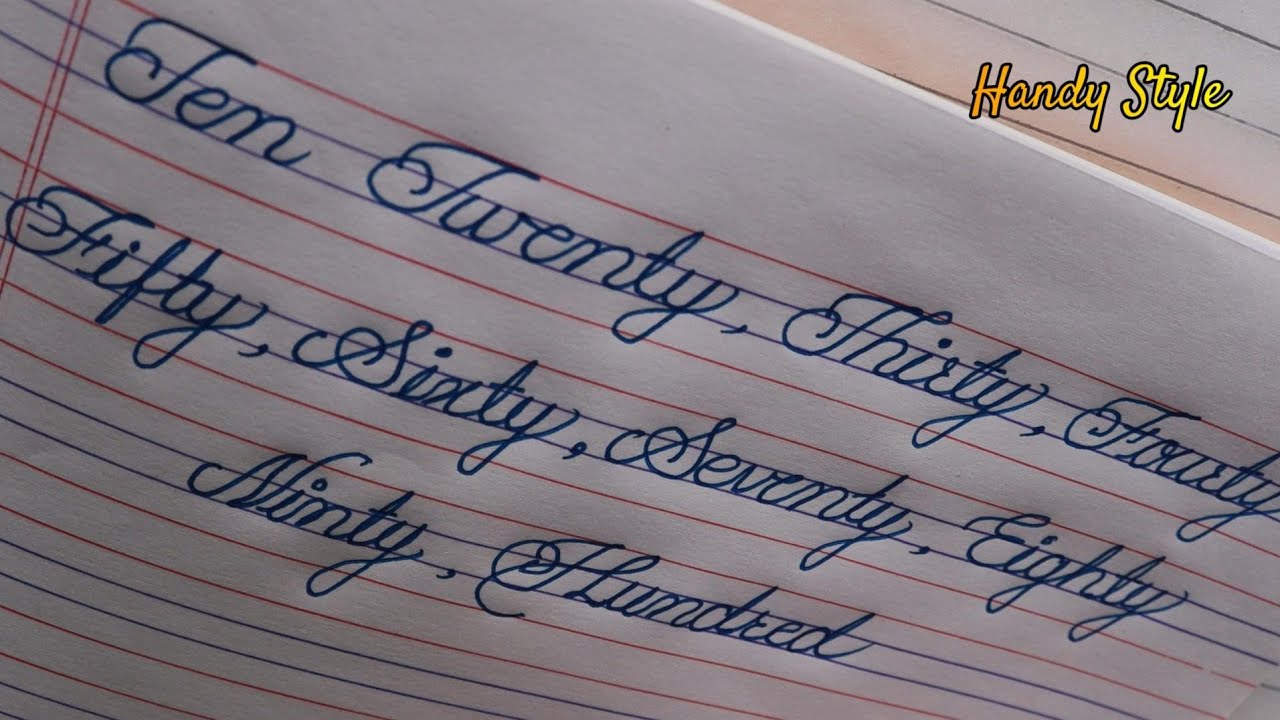 Handy Style
Ten Twenty, Thirty, Fourty
Fifty, Sixty, Seventy, Eighty
Ninty, Hundred